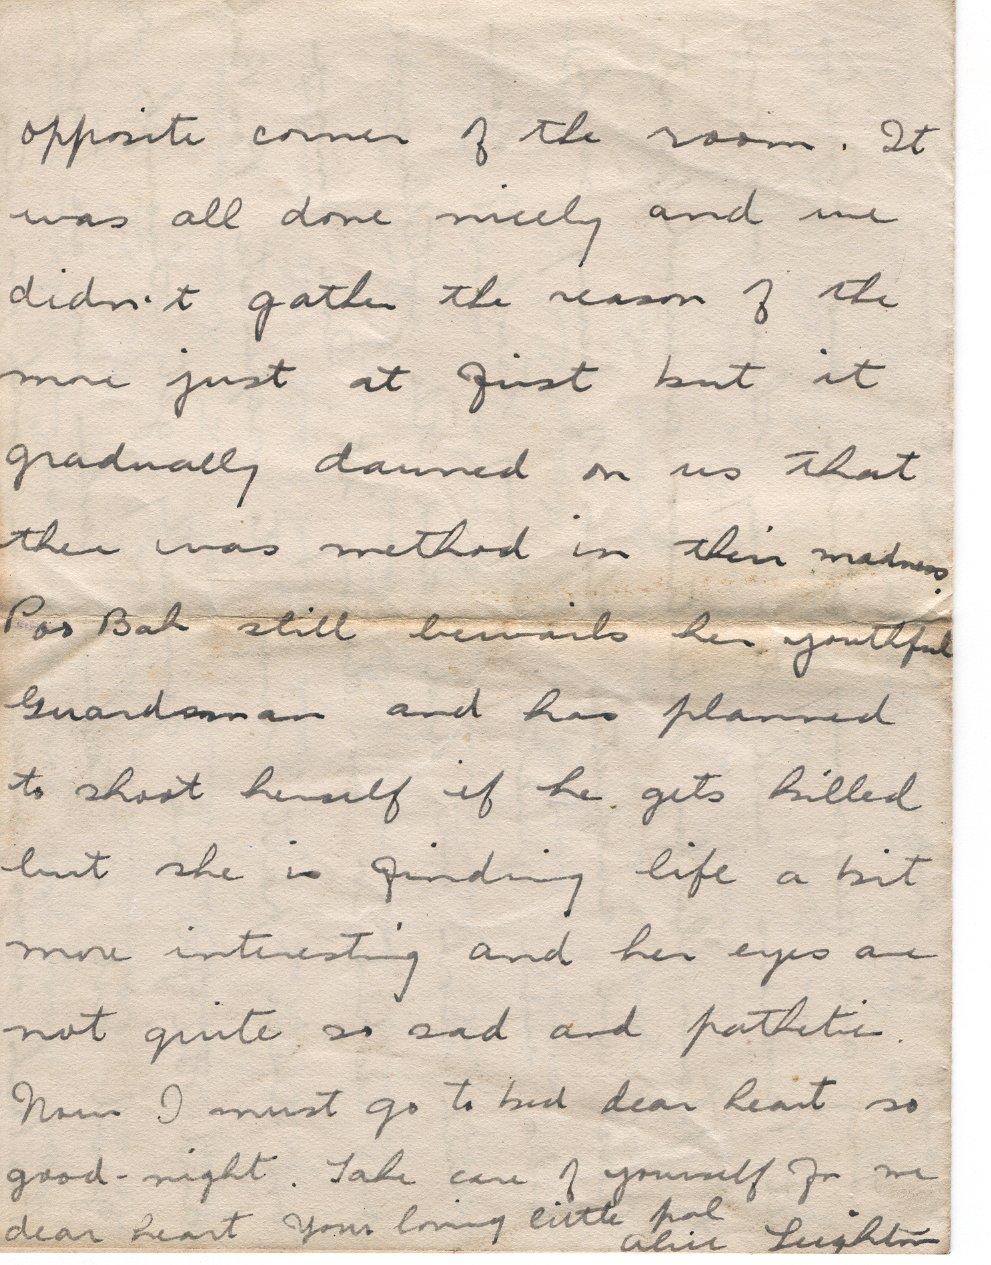 opposite corner of the room. It
was all done nicely and we
didn't gather the reason of the
more just at first but it
gradually dawned on us that
there was method in their madness.
Poo Bah still bewails her youthful
Guardsman and has planned
to shoot herself if he gets killed
but she is finding life a bit
more interesting and her eyes are
not quite so sad and pathetic.
Now I must go to bed dear heart so
good-night. Take care of yourself for me
dear heart Your loving little pal
Alice Leighton